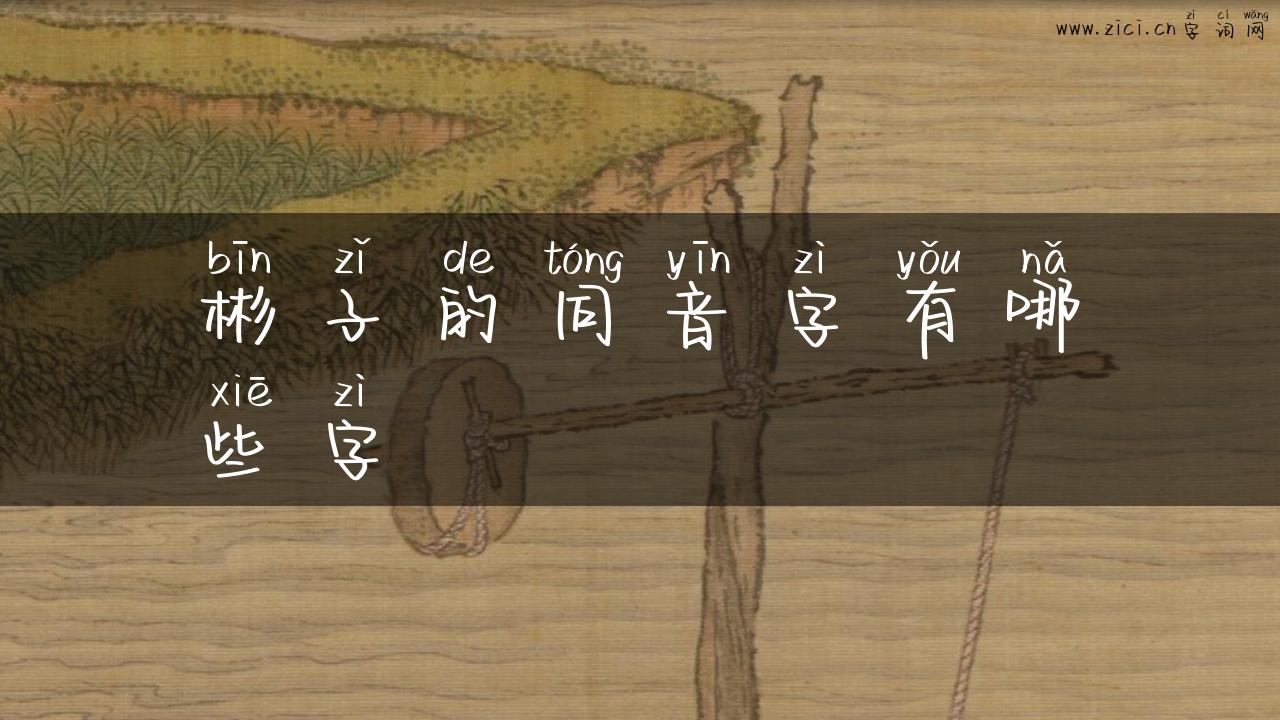 zì cí wǎng
www.zici.cn字词网
bīn zǐ de tóng yīn zì yǒu nǎ
彬子的同音字有哪
xiē zì
些字